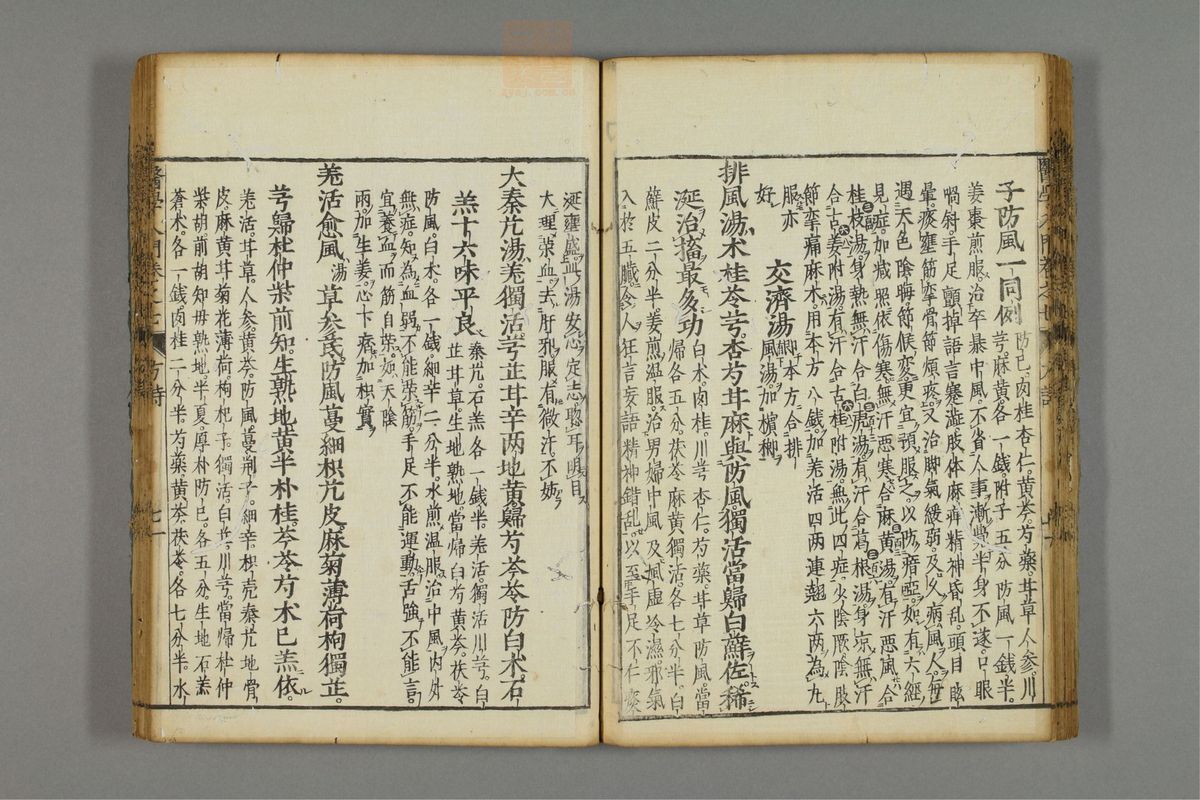 子防風一同例 防已。肉桂杏仁。黄芩。芍藥。甘草人参。川
芎。麻黄各一錢附子五分防風一錢半。
姜棗煎服。治卒暴中風。不省人事漸覺半身不遂。口眼
喎斜。手足顫掉語言蹇澁肢体麻痺精神昏乱。頭目眩
暈。痰壅筋攣骨節煩疼。又治脚氣緩弱。及久病風人。毎
遇天色陰晦節候変。更宜預服之。以防瘖瘂。如有六經
見症。加减照依傷寒。無汗惡寒合麻黄湯。有汗惡風合
桂枝湯。身熱無汗合白虎湯。有汗合葛根湯。身凉無汗
合古姜附湯。有汗合古桂附湯。無此四症。少陰厥陰肢
節攣痛麻木。用本方八錢。加羌活四两連翹六两為九
服亦
好
交濟湯 即本方合排
風湯。加檳榔
排風湯术桂苓芎。杏芍甘麻與防風。獨活當歸白蘚佐。稀
涎治搐最多功 白术。肉桂。川芎杏仁。芍藥。甘草防風。當
帰各五分。茯苓麻黄獨活。各七分半。白
蘚皮二分半。姜煎温服。治男婦中風及風虚冷濕。邪氣
入於五臟。令人狂言妄語精神錯乱。以至手足不仁痰
涎壅盛。此湯安心定志。聰耳明目。
大理栄血。去肝邪。服有微汗。不妨
大秦艽湯羗獨活。芎芷甘辛两地黄。歸芍苓芩防白术。石
羔十六味平良 秦艽。石羔各一錢半。羌活獨活川芎。白
芷甘草。生地熟地。當帰白芍黄芩。茯苓
防風。白术。各一錢。細辛二分半。水煎温服。治中風。内外
無症。知為血弱。不能栄筋。手足不能運動。舌強不能言。
宜養血而筋自栄。如天陰
雨。加生姜。心下痞。加枳實
羗活愈風湯 草参芪。防風蔓細枳艽皮。麻菊薄荷枸獨芷。
芎歸杜仲柴前知。生熟地黄半朴桂。苓芩芍术已羔依。
羌活。甘草。人参。黄芪。防風。蔓荆子。細辛。枳壳秦艽地骨
皮。麻黄甘菊花薄荷枸杞子。獨活。白芷川芎。當帰杜仲
柴胡前胡知母熟地半夏。厚朴防已。各五分。生地石羔
蒼术。各一錢肉桂二分半。芍藥黄芩。茯苓。各七分半。水
醫學入門巻之七
方詩
七一